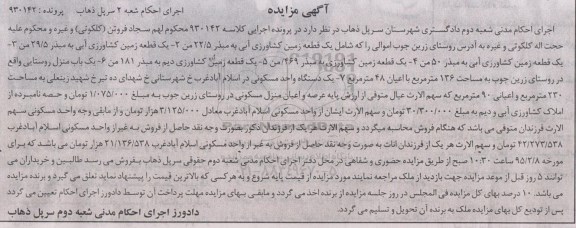 آگهی مزایده
اجرای احکام شعبه ۲ سرپل ذهاب پرونده : ۹۳۰۱۴۲
اجرای احکام مدنی شعبه دوم دادگستری شهرستان سرپل ذهاب در نظر دارد در پرونده اجرایی کلاسه ۹۳۰۱۴۲ محکوم لهم سجاد فروش (گلکوئی) و غیره و محکوم علیه
حجت اله گلکوئی و غیره به آدرس روستای زرین جوب اموالی را که شامل یک قطعه زمین کشاورزی آبی به میذر ۲۲/۵ من ۲- یک قطعه زمین کشاورزی آبی به میذر ۲۹/۵ من ۳-
یک قطعه زمین کشاورزی آبی به میذر ۵۰ من ۴- یک قطعه زمین کشاورزی آبی به میذر ۴۶۹ من ۵- یک قطعه زمین کشاورزی دیم به میذر ۱۸۱ من ۶- یک باب منزل روستایی واقع
در روستای زرین جوب به مساحت ۱۳۶ مترمربع با اعیان ۴۸ مترمربع ۷- یک دستگاه واحد مسکونی در اسلام آبادغرب خ شهرستانی خ شهدای ده تیر خ شهید زینعلی به مساحت
۲۳۰ مترمربع و اعیانی ۹۰ مترمربع که سهم الارث عیال متوفی از ارزش پایه عرصه و اعیان منزل مسکونی در روستای زرین جوب به مبلغ ۱/۰۷۵/۰۰۰ تومان و حصه نامبرده از
املاک کشاورزی آبی و دیم به مبلغ ۳۰/۳۰۰/۰۰۰ تومان و سهم الارث ایشان از واحد مسکونی اسلام آبادغرب معادل ۳/۱۳۵/۰۰۰ هزار تومان و از مابقی وجه واحد مسکونی سهم
الارث فرزندان متوفی می باشد که هنگام فروش محاسبه میگردد و سهم الارث هر یک از فرزندان ذکور بصورت وجه نقد حاصل از فروش به غیر از واحد مسکونی اسلام آبادغرب
۴۲/۲۷۳/۵۳۸ تومان و سهم الارث هر یک از فرزندان اناث به صورت وجه نقد حاصل از فروش به غیر از واحد مسکونی اسلام آبادغرب ۲۱/۱۳۶/۵۳۸ هزار تومان می باشد که برای
مورخه ۹۵/۲/۸ ساعت ۱۰:۳۰ صبح از طریق مزایده حضوری و شفاهی در محل دفتر اجرای احکام مدنی شعبه دوم حقوقی سرپل ذهاب بفروش می رسد طالبین و خریداران می
توانند ۵ روز قبل از موعد مزایده جهت بازدید از ملک مراجعه نمایند مورد مزایده از قیمت پایه شروع و به هر کسی که بالاترین قیمت را پیشنهاد نماید تعلق می گیرد و برنده مزایده
می باشد. ۱۰ درصد بهای کل مزایده فی المجلس در روز جلسه مزایده از برنده اخذ می گردد و مابقی بهای مزایده مهلت پرداخت آن توسط دادورز اجرای احکام تعیین می گردد
پس از تودیع کل بهای مزایده ملک به برنده آن تحویل و تسلیم می گردد.
دادورز اجرای احکام مدنی شعبه دوم سرپل ذهاب